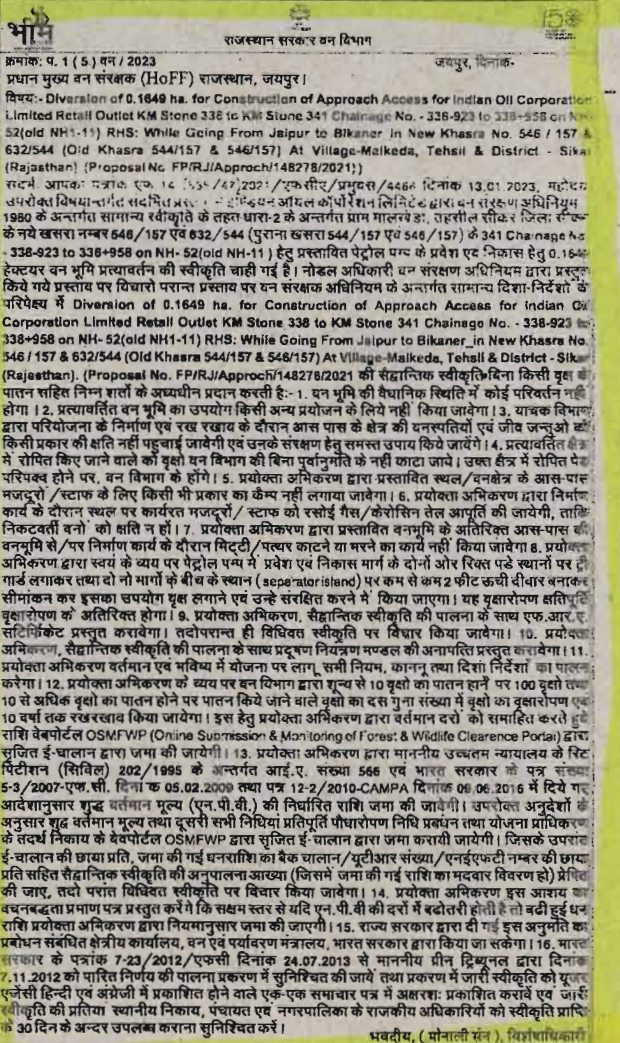 भीम
राजस्थान सरकार वन विभाग
क्रमांक: प. 1 ( 5 ) वन / 2023 जयपुर, दिनांक-
प्रधान मुख्य वन संरक्षक (HoFF) राजस्थान, जयपुर।
विषय:- Diversion of 0.1649 ha. for Construction of Approach Access for Indian Oil Corporation
Limited Retail Outlet KM Stone 338 to KM Stone 341 Chainage No. - 338-923 to 338+958 on NH-
52(old NH1-11) RHS: While Going From Jaipur to Bikaner In New Khasra No. 546 / 157 &
632/544 (Old Khasra 544/157 & 546/157) At Village-Malkeda, Tehsil & District - Sikar
(Rajasthan) (Proposal No. FP/RJ/Approch/148276/2021))
संदर्भ. आपका पत्रांक एफ. 14 2021/एफसीए/प्रमुवसं/4464 दिनांक 13.01.2023, महोदय
उपरोक्त विषयान्तर्गत संदर्भित इण्डियन ऑयल कॉर्पोरेशन लिमिटेड द्वारा वन संरक्षण अधिनियम
1980 के अन्तर्गत सामान्य स्वीकृति के तहत धारा-2 के अन्तर्गत ग्राम मालखेडा, तहसील सीकर जिला सीकर
के नये खसरा नम्बर 546/157 एवं 632/544 (पुराना खसरा 544/157 एवं 546/157) के 341 Chainage No
- 338-923 to 336+958 on NH- 52(old NH-11 ) हेतु प्रस्तावित पेट्रोल पम्प के प्रवेश एवं निकास हेतु 0.1649
हेक्टयर वन भूमि प्रत्यावर्तन की स्वीकृति चाही गई है। नोडल अधिकारी वन संरक्षण अधिनियम द्वारा प्रस्तुत
किये गये प्रस्ताव पर विचारो परान्त प्रस्ताव पर वन संरक्षक अधिनियम के अन्तर्गत सामान्य दिशा-निर्देशों के
परिपेक्ष्य में Diversion of 0.1649 ha. for Construction of Approach Access for Indian Oil
Corporation Limited Retail Outlet KM Stone 338 to KM Stone 341 Chainage No. - 338-923 to
338+958 on NH- 52(old NH1-11) RHS: While Going From Jaipur to Bikaner_in New Khasra No.
546 / 157 & 632/544 (Old Khasra 544/157 & 546/157) At Village-Malkeda, Tehsil & District - Sikar
(Rajasthan). (Proposal No. FP/RJ/Approch/148276/2021 की सैद्धान्तिक स्वीकृति बिना किसी वृक्ष के
पातन सहित निम्न शर्तो के अध्यधीन प्रदान करती है:- 1. वन भूमि की वैधानिक स्थिति में कोई परिवर्तन नहीं
होगा । 2. प्रत्यावर्तित वन भूमि का उपयोग किसी अन्य प्रयोजन के लिये नहीं किया जावेगा । 3. याचक विभाग
द्वारा परियोजना के निर्माण एवं रख रखाव के दौरान आस पास के क्षेत्र की वनस्पतियों एवं जीव जन्तुओ को
किसी प्रकार की क्षति नहीं पहुचाई जावेगी एवं उनके संरक्षण हेतु समस्त उपाय किये जायेंगे । 4. प्रत्यावर्तित क्षेत्र
में रोपित किए जाने वाले को वृक्षो वन विभाग की बिना पूर्वानुमति के नहीं काटा जाये। उक्त क्षेत्र में रोपित पेड
परिपक्व होने पर, वन विभाग के होंगे । 5. प्रयोक्ता अभिकरण द्वारा प्रस्तावित स्थल/वनक्षेत्र के आस-पास
मजदूरों /स्टाफ के लिए किसी भी प्रकार का कैम्प नहीं लगाया जावेगा । 6. प्रयोक्ता अभिकरण द्वारा निर्माण
कार्य के दौरान स्थल पर कार्यरत मजदूरों/ स्टाफ को रसोई गैस/केरोसिन तेल आपूर्ति की जायेगी, ताकि
निकटवर्ती वनो को क्षति न हो। 7. प्रयोक्ता अभिकरण द्वारा प्रस्तावित वनभूमि के अतिरिक्त आस-पास की
वनभूमि से/पर निर्माण कार्य के दौरान मिट्टी/पत्थर काटने या भरने का कार्य नहीं किया जावेगा 8. प्रयोक्ता
अभिकरण द्वारा स्वयं के व्यय पर पेट्रोल पम्प में प्रवेश एवं निकास मार्ग के दोनों ओर रिक्त पडे स्थानों पर ट्री
गार्ड लगाकर तथा दो नो मार्गो के बीच के स्थान (seperator island) पर कम से कम 2 फीट ऊची दीवार बनाकर
सीमांकन कर इसका उपयोग वृक्ष लगाने एवं उन्हे संरक्षित करने में किया जाएगा। यह वृक्षारोपण क्षतिपूर्ति
वृक्षारोपण के अतिरिक्त होगा। 9. प्रयोक्ता अभिकरण, सैद्वान्तिक स्वीकृति की पालना के साथ एफ.आर.ए.
सर्टिफिकेट प्रस्तुत करावेगा। तदोपरान्त ही विधिवत स्वीकृति पर विचार किया जावेगा। 10. प्रयोक्ता
अभिकरण, सैद्वान्तिक स्वीकृति की पालना के साथ प्रदूषण नियंत्रण मण्डल की अनापत्ति प्रस्तुत करावेगा । 11.
प्रयोक्ता अभिकरण वर्तमान एवं भविष्य में योजना पर लागू सभी नियम, कानून तथा दिशा निर्देशों का पालन
करेगा । 12. प्रयोक्ता अभिकरण के व्यय पर वन विभाग द्वारा शून्य से 10 वृक्षो का पातन होने पर 100 वृक्षो तथा
10 से अधिक वृक्षो का पातन होने पर पातन किये जाने वाले वृक्षो का दस गुना संख्या में वृक्षो का वृक्षारोपण एवं
10 वर्षो तक रखरखाव किया जायेगा। इस हेतु प्रयोक्ता अभिकरण द्वारा वर्तमान दरो को समाहित करते हुये
राशि वेबपोर्टल OSMFWP (Online Submission & Monitoring of Forest & Wildlife Clearence Portal) द्वारा
सृजित ई-चालान द्वारा जमा की जायेगी। 13. प्रयोक्ता अभिकरण द्वारा माननीय उच्चतम न्यायालय के रिट
पिटीशन (सिविल) 202/1995 के अन्तर्गत आई.ए. संख्या 566 एवं भारत सरकार के पत्र संख्या
5-3/2007-एफ.सी. दिनांक 05.02.2009 तथा पत्र 12-2/2010-CAMPA दिनांक 09.06.2016 में दिये गए
आदेशानुसार शुद्ध वर्तमान मूल्य (एन.पी.वी.) की निर्धारित राशि जमा की जावेगी। उपरोक्त अनुदेशों के
अनुसार शुद्व वर्तमान मूल्य तथा दूसरी सभी निधियां प्रतिपूर्ति पौधारोपण निधि प्रबंधन तथा योजना प्राधिकरण
के तदर्थ निकाय के वेवपोर्टल OSMFWP द्वारा सृजित ई-चालान द्वारा जमा करायी जायेगी । जिसके उपरांत
ई-चालान की छाया प्रति, जमा की गई धनराशि का बैक चालान/यूटीआर संख्या/एनईएफटी नम्बर की छाया
प्रति सहित सैद्वान्तिक स्वीकृति की अनुपालना आख्या (जिसमें जमा की गई राशि का मदवार विवरण हो) प्रेषित
की जाए, तदो परांत विधिवत स्वीकृति पर विचार किया जावेगा। 14. प्रयोक्ता अभिकरण इस आशय का
वचनबद्धता प्रमाण पत्र प्रस्तुत करेंगे कि सक्षम स्तर से यदि एन.पी.वी की दरों में बढोतरी होती है तो बढी हुई धन
राशि प्रयोक्ता अभिकरण द्वारा नियमानुसार जमा की जाएगी। 15. राज्य सरकार द्वारा दी गई इस अनुमति का
प्रबोधन संबंधित क्षेत्रीय कार्यालय, वन एवं पर्यावरण मंत्रालय, भारत सरकार द्वारा किया जा सकेगा । 16. भारत
सरकार के पत्रांक 7-23/2012/एफसी दिनांक 24.07.2013 से माननीय ग्रीन ट्रिब्यूनल द्वारा दिनांक
7.11.2012 को पारित निर्णय की पालना प्रकरण में सुनिश्चित की जायें तथा प्रकरण में जारी स्वीकृति को यूजर
एजेंसी हिन्दी एवं अंग्रेजी में प्रकाशित होने वाले एक-एक समाचार पत्र में अक्षरशः प्रकाशित करावें एवं जारी
स्वीकृति की प्रतिया स्थानीय निकाय, पंचायत एवं नगरपालिका के राजकीय अधिकारियों को स्वीकृति प्राप्ति
के 30 दिन के अन्दर उपलब्ध कराना सुनिश्चित करें।
भवदीय, ( मोनाली सेन ), विशेषाधिकारी